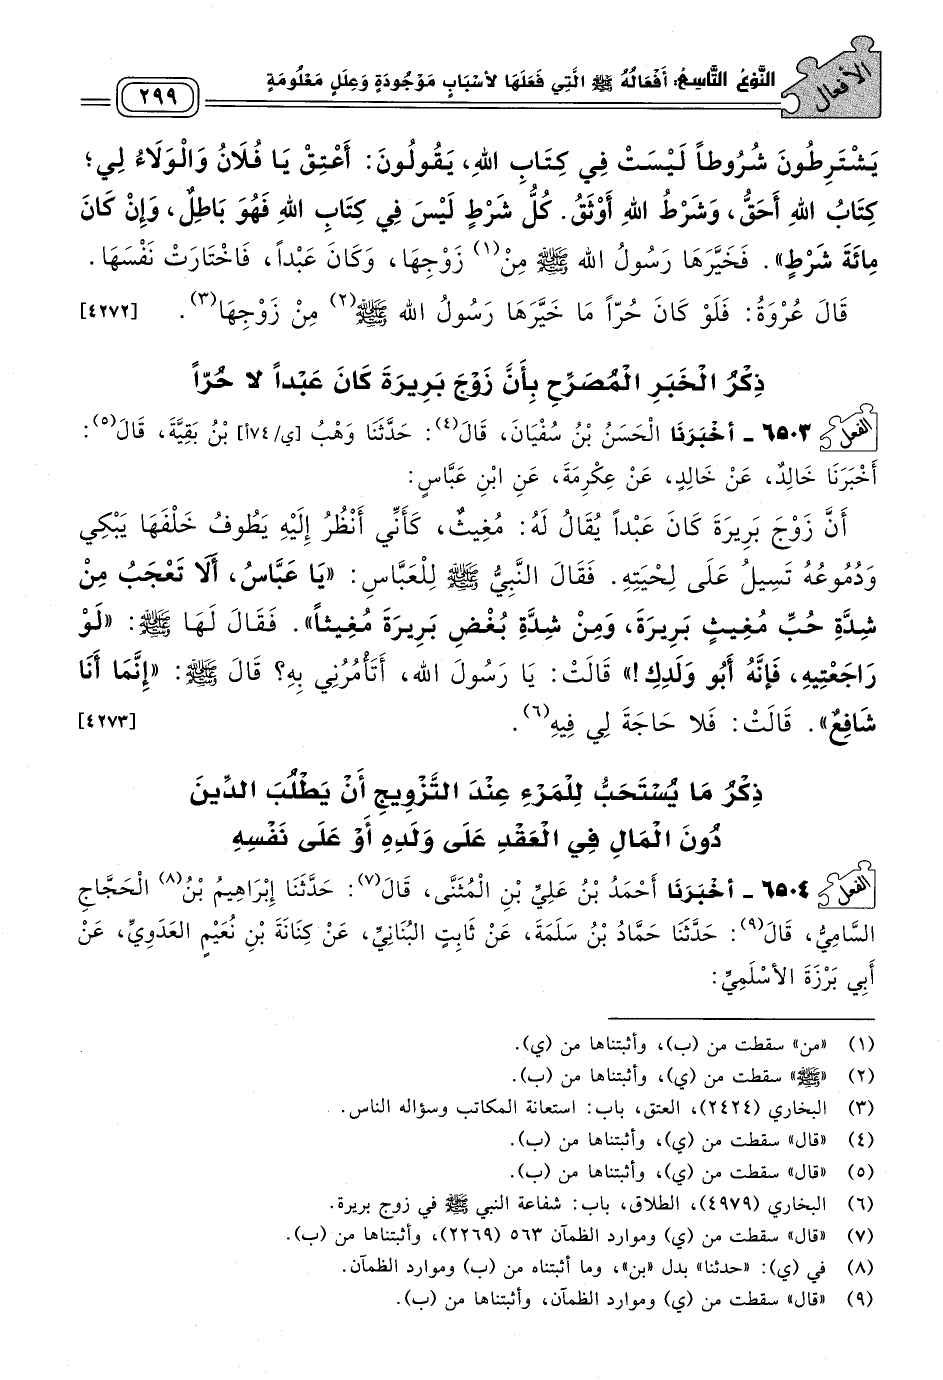 الأفعال
النَّوْعُ التَّاسِعُ: أَفْعَالُهُ ﷺ الَّتِي فَعَلَهَا لأَسْبَابٍ مَوْجُودَةٍ وَعِلَلٍ مَعْلُومَةٍ
٢٩٩
يَشْتَرِطُونَ شُرُوطاً لَيْسَتْ فِي كِتَابِ اللهِ، يَقُولُونَ: أَعْتِقْ يَا فُلَانُ وَالْوَلَاءُ لِي؛
كِتَابُ اللهِ أَحَقُّ، وَشَرْطُ اللهِ أَوْثَقُ. كُلُّ شَرْطٍ لَيْسَ فِي كِتَابِ اللهِ فَهُوَ بَاطِلٌ، وَإِنْ كَانَ
مِائَةَ شَرْطٍ». فَخَيَّرَهَا رَسُولُ الله ﷺ مِنْ(١) زَوْجِهَا، وَكَانَ عَبْداً، فَاخْتَارَتْ نَفْسَهَا.
قَالَ عُرْوَةُ: فَلَوْ كَانَ حُرّاً مَا خَيَّرَهَا رَسُولُ الله ﷺ(٢) مِنْ زَوْجِهَا(٣). [٤٢٧٢]
ذِكْرُ الْخَبَرِ الْمُصَرِّحِ بِأَنَّ زَوْجَ بَرِيرَةَ كَانَ عَبْداً لا حُرّاً
الفعل ٦٥٠٣ ـ أَخْبَرَنَا الْحَسَنُ بْنُ سُفْيَانَ، قَالَ(٤): حَدَّثَنَا وَهْبُ [ي/٧٤أ] بْنُ بَقِيَّةَ، قَالَ(٥):
أَخْبَرَنَا خَالِدٌ، عَنْ خَالِدٍ، عَنْ عِكْرِمَةَ، عَنِ ابْنِ عَبَّاسٍ:
أَنَّ زَوْجَ بَرِيرَةَ كَانَ عَبْداً يُقَالُ لَهُ: مُغِيثٌ، كَأَنِّي أَنْظُرُ إِلَيْهِ يَطُوفُ خَلْفَهَا يَبْكِي
وَدُمُوعُهُ تَسِيلُ عَلَى لِحْيَتِهِ. فَقَالَ النَّبِيُّ ﷺ لِلْعَبَّاسِ: «يَا عَبَّاسُ، أَلَا تَعْجَبُ مِنْ
شِدَّةِ حُبِّ مُغِيثٍ بَرِيرَةَ، وَمِنْ شِدَّةِ بُغْضِ بَرِيرَةَ مُغِيثاً». فَقَالَ لَهَا ﷺ: «لَوْ
رَاجَعْتِيهِ، فَإِنَّهُ أَبُو وَلَدِكِ!» قَالَتْ: يَا رَسُولَ الله، أَتَأْمُرُنِي بِهِ؟ قَالَ ﷺ: «إِنَّمَا أَنَا
شَافِعٌ». قَالَتْ: فَلا حَاجَةَ لِي فِيهِ(٦). [٤٢٧٣]
ذِكْرُ مَا يُسْتَحَبُّ لِلْمَرْءِ عِنْدَ التَّزْوِيجِ أَنْ يَطْلُبَ الدِّينَ
دُونَ الْمَالِ فِي الْعَقْدِ عَلَى وَلَدِهِ أَوْ عَلَى نَفْسِهِ
الفعل ٦٥٠٤ ـ أَخْبَرَنَا أَحْمَدُ بْنُ عَلِيِّ بْنِ الْمُثَنَّى، قَالَ(٧): حَدَّثَنَا إِبْرَاهِيمُ بْنُ(٨) الْحَجَّاجِ
السَّامِيُّ، قَالَ(٩): حَدَّثَنَا حَمَّادُ بْنُ سَلَمَةَ، عَنْ ثَابِتٍ البُنَانِيِّ، عَنْ كِنَانَةَ بْنِ نُعَيْمٍ العَدَوِيِّ، عَنْ
أَبِي بَرْزَةَ الأَسْلَمِيِّ:
(١) «من» سقطت من (ب)، وأثبتناها من (ي).
(٢) «ﷺ» سقطت من (ي)، وأثبتناها من (ب).
(٣) البخاري (٢٤٢٤)، العتق، باب: استعانة المكاتب وسؤاله الناس.
(٤) «قال» سقطت من (ي)، وأثبتناها من (ب).
(٥) «قال» سقطت من (ي)، وأثبتناها من (ب).
(٦) البخاري (٤٩٧٩)، الطلاق، باب: شفاعة النبي ﷺ في زوج بريرة.
(٧) «قال» سقطت من (ي) وموارد الظمآن ٥٦٣ (٢٢٦٩)، وأثبتناها من (ب).
(٨) في (ي): «حدثنا» بدل «بن»، وما أثبتناه من (ب) وموارد الظمآن.
(٩) «قال» سقطت من (ي) وموارد الظمآن، وأثبتناها من (ب).